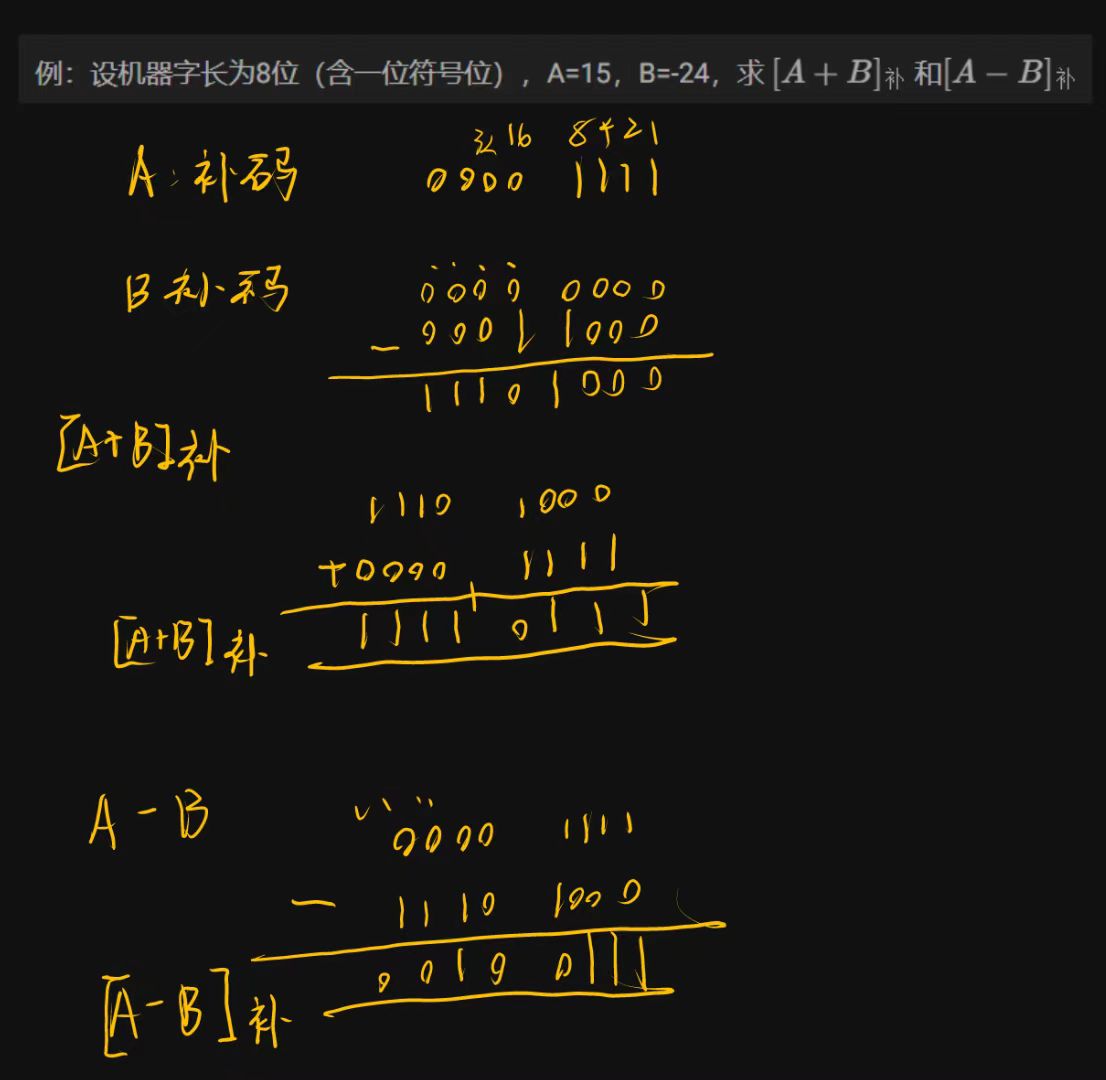 例：设机器字长为8位（含一位符号位），A=15，B=-24，求 [A + B]补 和[A − B]补
32 16 8421
A：补码 0000 1111
B 补码 0000 0000
− 0001 1000
1110 1000
[A+B]补
1110 1000
+0000 1111
[A+B]补 1111 0111
A - B 0000 1111
− 1110 1000
[A-B]补 0010 0111